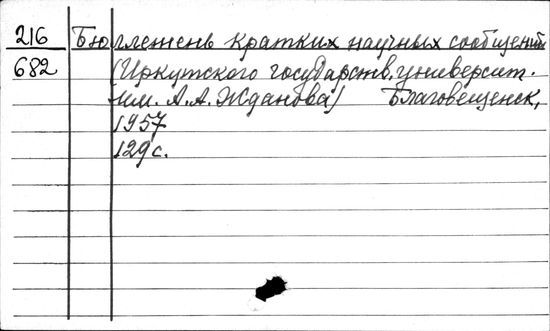 216 Бюллетень кратких научных сообщений
682 (Иркутского государств. университ.
им. А.А. Жданова) Благовещенск,
1957
129 с.